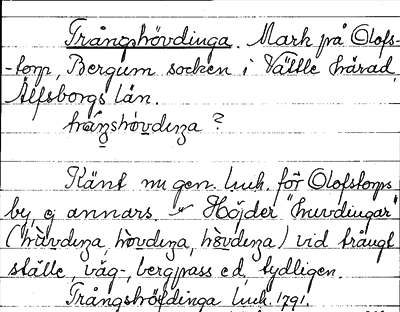 Trångshövdinga. Mark på Olofs-
-torp, Bergum socken i Vättle härad,
Älfsborgs län.
trångshövdinga ?
Känt nu gen. luk. för Olofstorps
by, ej annars. Höjder "huvdingar"
(hùvdenga, hòvdenga, hövdenga) vid trångt
ställe, väg-, bergpass e.d., tydligen.
Trångshöfdinga luk. 1791.